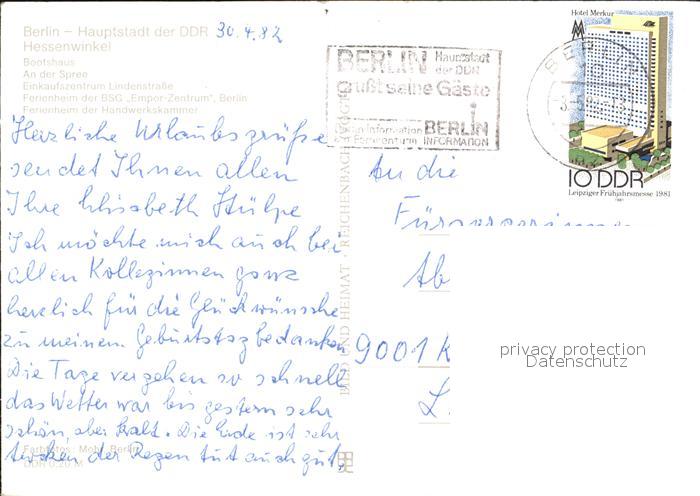 Berlin – Hauptstadt der DDR 30.4.82
Hessenwinkel
Bootshaus
An der Spree
Einkaufszentrum Lindenstraße
Ferienheim der BSG „Empor-Zentrum", Berlin
Ferienheim der Handwerkskammer
Herzliche Urlaubsgrüße
sendet Ihnen allen
Ihre Elisabeth Hülpe
Ich möchte mich auch bei
allen Kolleginnen ganz
herzlich für die Glückwünsche
zu meinem Geburtstag bedanken
Die Tage vergehen so schnell
das Wetter war bis gestern sehr
schön, aber kalt. Die Erde ist sehr
trocken der Regen tut auch gut,
Farbfotos: Berlin
DDR 0,20 M
BILD UND HEIMAT · REICHENBACH (VOGTL)
BERLIN Hauptstadt
der DDR
grüßt seine Gäste
Information BERLIN
INFORMATION
BERLIN
Hotel Merkur
10 DDR
Leipziger Frühjahrsmesse 1981
An die
Ab
9001 K
L
privacy protection
Datenschutz